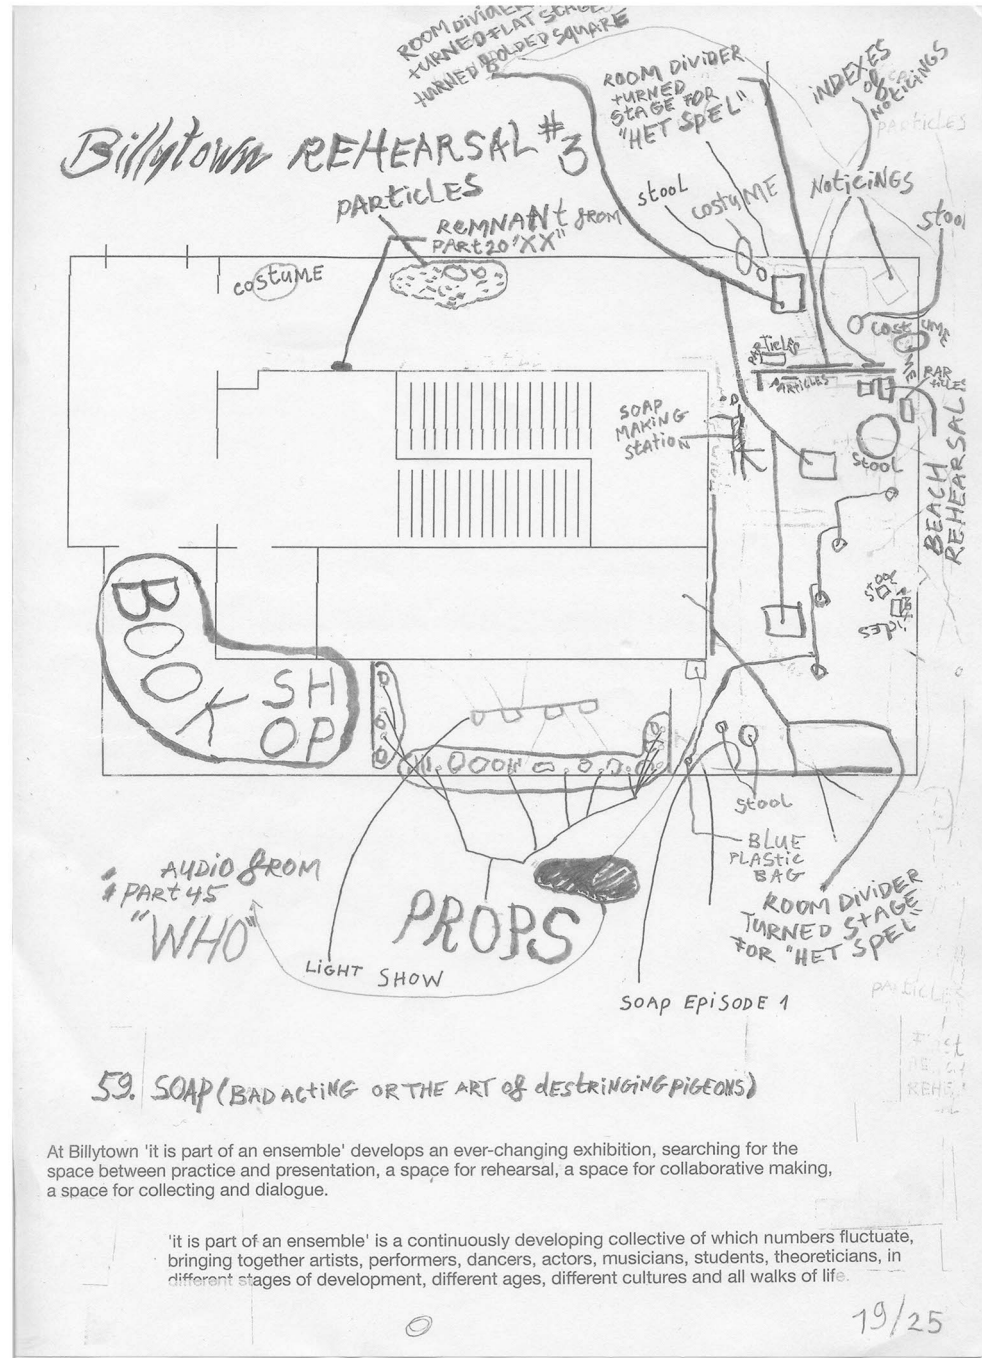 ROOM DIVIDER
TURNED FLAT STAGE
TURNED FOLDED SQUARE
ROOM DIVIDER
TURNED
STAGE FOR
"HET SPEL"
INDEXES
OF
NOTICINGS
PARTICLES
Billytown REHEARSAL #3
PARTICLES
REMNANT FROM
PART 20 'XX"
stool
COSTUME
NOTICINGS
stool
COSTUME
COSTUME
PARTICLES
PARTICLES
PARTICLES
SOAP
MAKING
STATION
stool
BEACH
REHEARSAL
STOOL
BOOK
SHOP
stool
BLUE
PLASTIC
BAG
AUDIO FROM
PART 45
"WHO"
PROPS
ROOM DIVIDER
TURNED STAGE
FOR "HET SPEL"
LIGHT SHOW
SOAP EPISODE 1
PARTICLES
59. SOAP (BAD ACTING OR THE ART OF DESTRINGING PIGEONS)
At Billytown 'it is part of an ensemble' develops an ever-changing exhibition, searching for the
space between practice and presentation, a space for rehearsal, a space for collaborative making,
a space for collecting and dialogue.
'it is part of an ensemble' is a continuously developing collective of which numbers fluctuate,
bringing together artists, performers, dancers, actors, musicians, students, theoreticians, in
different stages of development, different ages, different cultures and all walks of life.
19/25